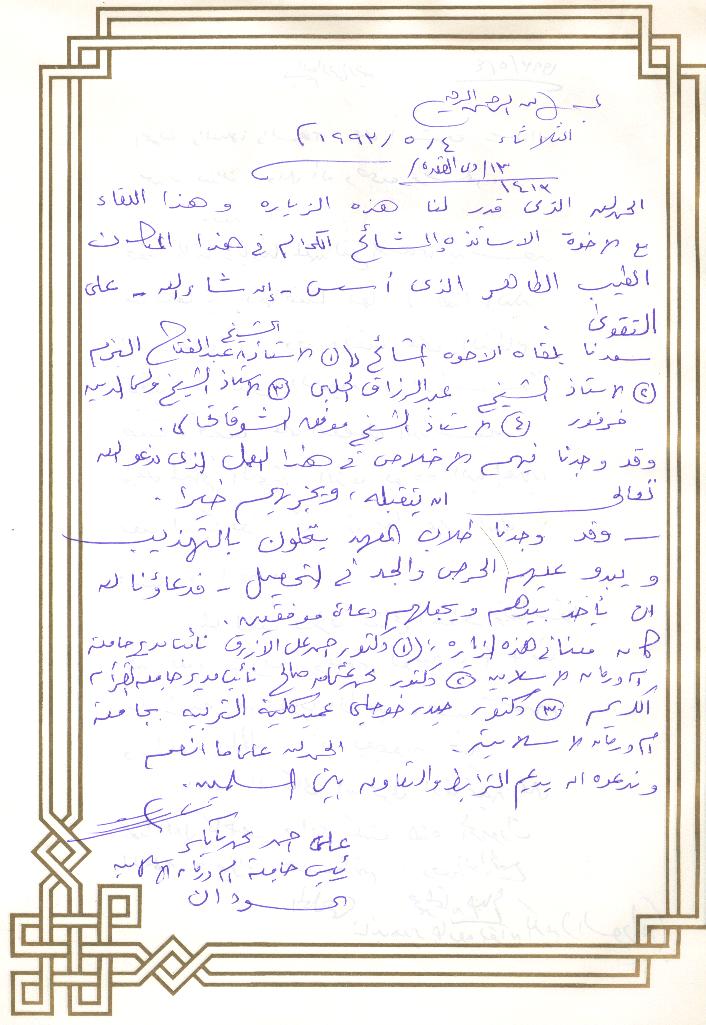 بسم الله الرحمن الرحيم
الثلاثاء ٤/٥/١٩٩٣م
١٣/ذى القعدة/
١٤١٣
الحمدلله الذى قدر لنا هذه الزياره وهذا اللقاء
مع الاخوة الاساتذه والمشائخ الكرام فى هذا المكان
الطيب الطاهر الذى أسس - إن شاء الله - على
التقوى.
سعدنا بلقاء الاخوه المشائخ (١) الاستاذ الشيخ عبدالفتاح البزم
(٢) الاستاذ الشيخ عبدالرزاق الحلبى (٣) الاستاذ الشيخ ولى الدين
فرفور (٤) الاستاذ الشيخ موفق النشوقاتى.
وقد وجدنا فيهم الاخلاص فى هذا العمل الذى ندعو الله
تعالى ان يتقبله، ويجزيهم خيرا.
- وقد وجدنا طلاب المعهد يتحلون بالتهذيب
ويبدو عليهم الحرص والجد فى التحصيل - فدعاؤنا لله
ان يأخذ بيدهم ويجعلهم دعاة موفقين.
كان معنا فى هذه الزياره: (١) دكتور احمد على الأزرق نائب مدير جامعة
ام درمان الاسلاميه (٢) دكتور محمد عثمان صالح نائب مدير جامعه القرآن
الكريم (٣) دكتور حيدر خوجلى عميد كلية التربيه بجامعة
ام درمان الاسلامية. الحمدلله على ما انعم
وندعوه ان يديم الترابط والتعاون بين المسلمين.
على احمد محمد بابكر
رئيس جامعة ام درمان الاسلاميه
السودان